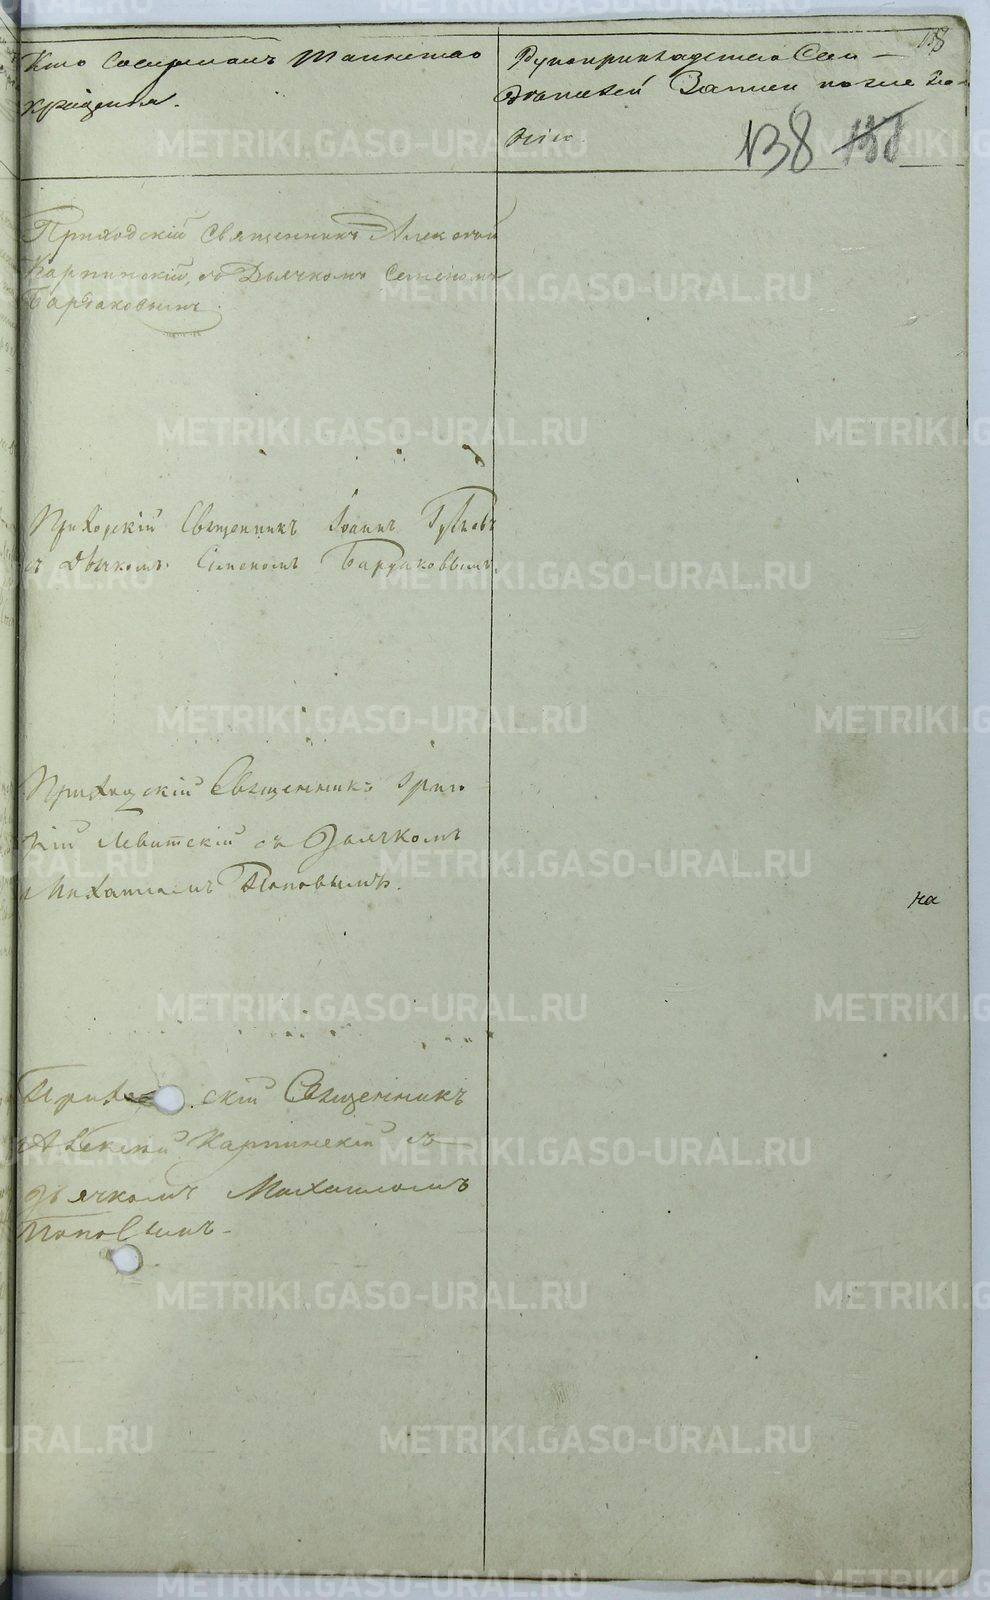 118
Кто совершалъ таинство
крещенія.
Рукоприкладство Сви-
дѣтелей Записи по же
138
Приходскій Священникъ Алексѣй
Карпинскій, съ Дьячкомъ Семеномъ
Бардаковымъ.
Приходскій Священникъ Іоаннъ
съ Дьячкомъ Семеномъ Бардаковымъ.
Приходскій Священникъ Григо
рій Левитскій съ Дьячкомъ
Михаиломъ Поповымъ.
на
Прихо скій Священникъ
Алексѣй Карпинскій съ
Дьячкомъ Михаиломъ
Поповымъ.
METRIKI.GASO-URAL.RU